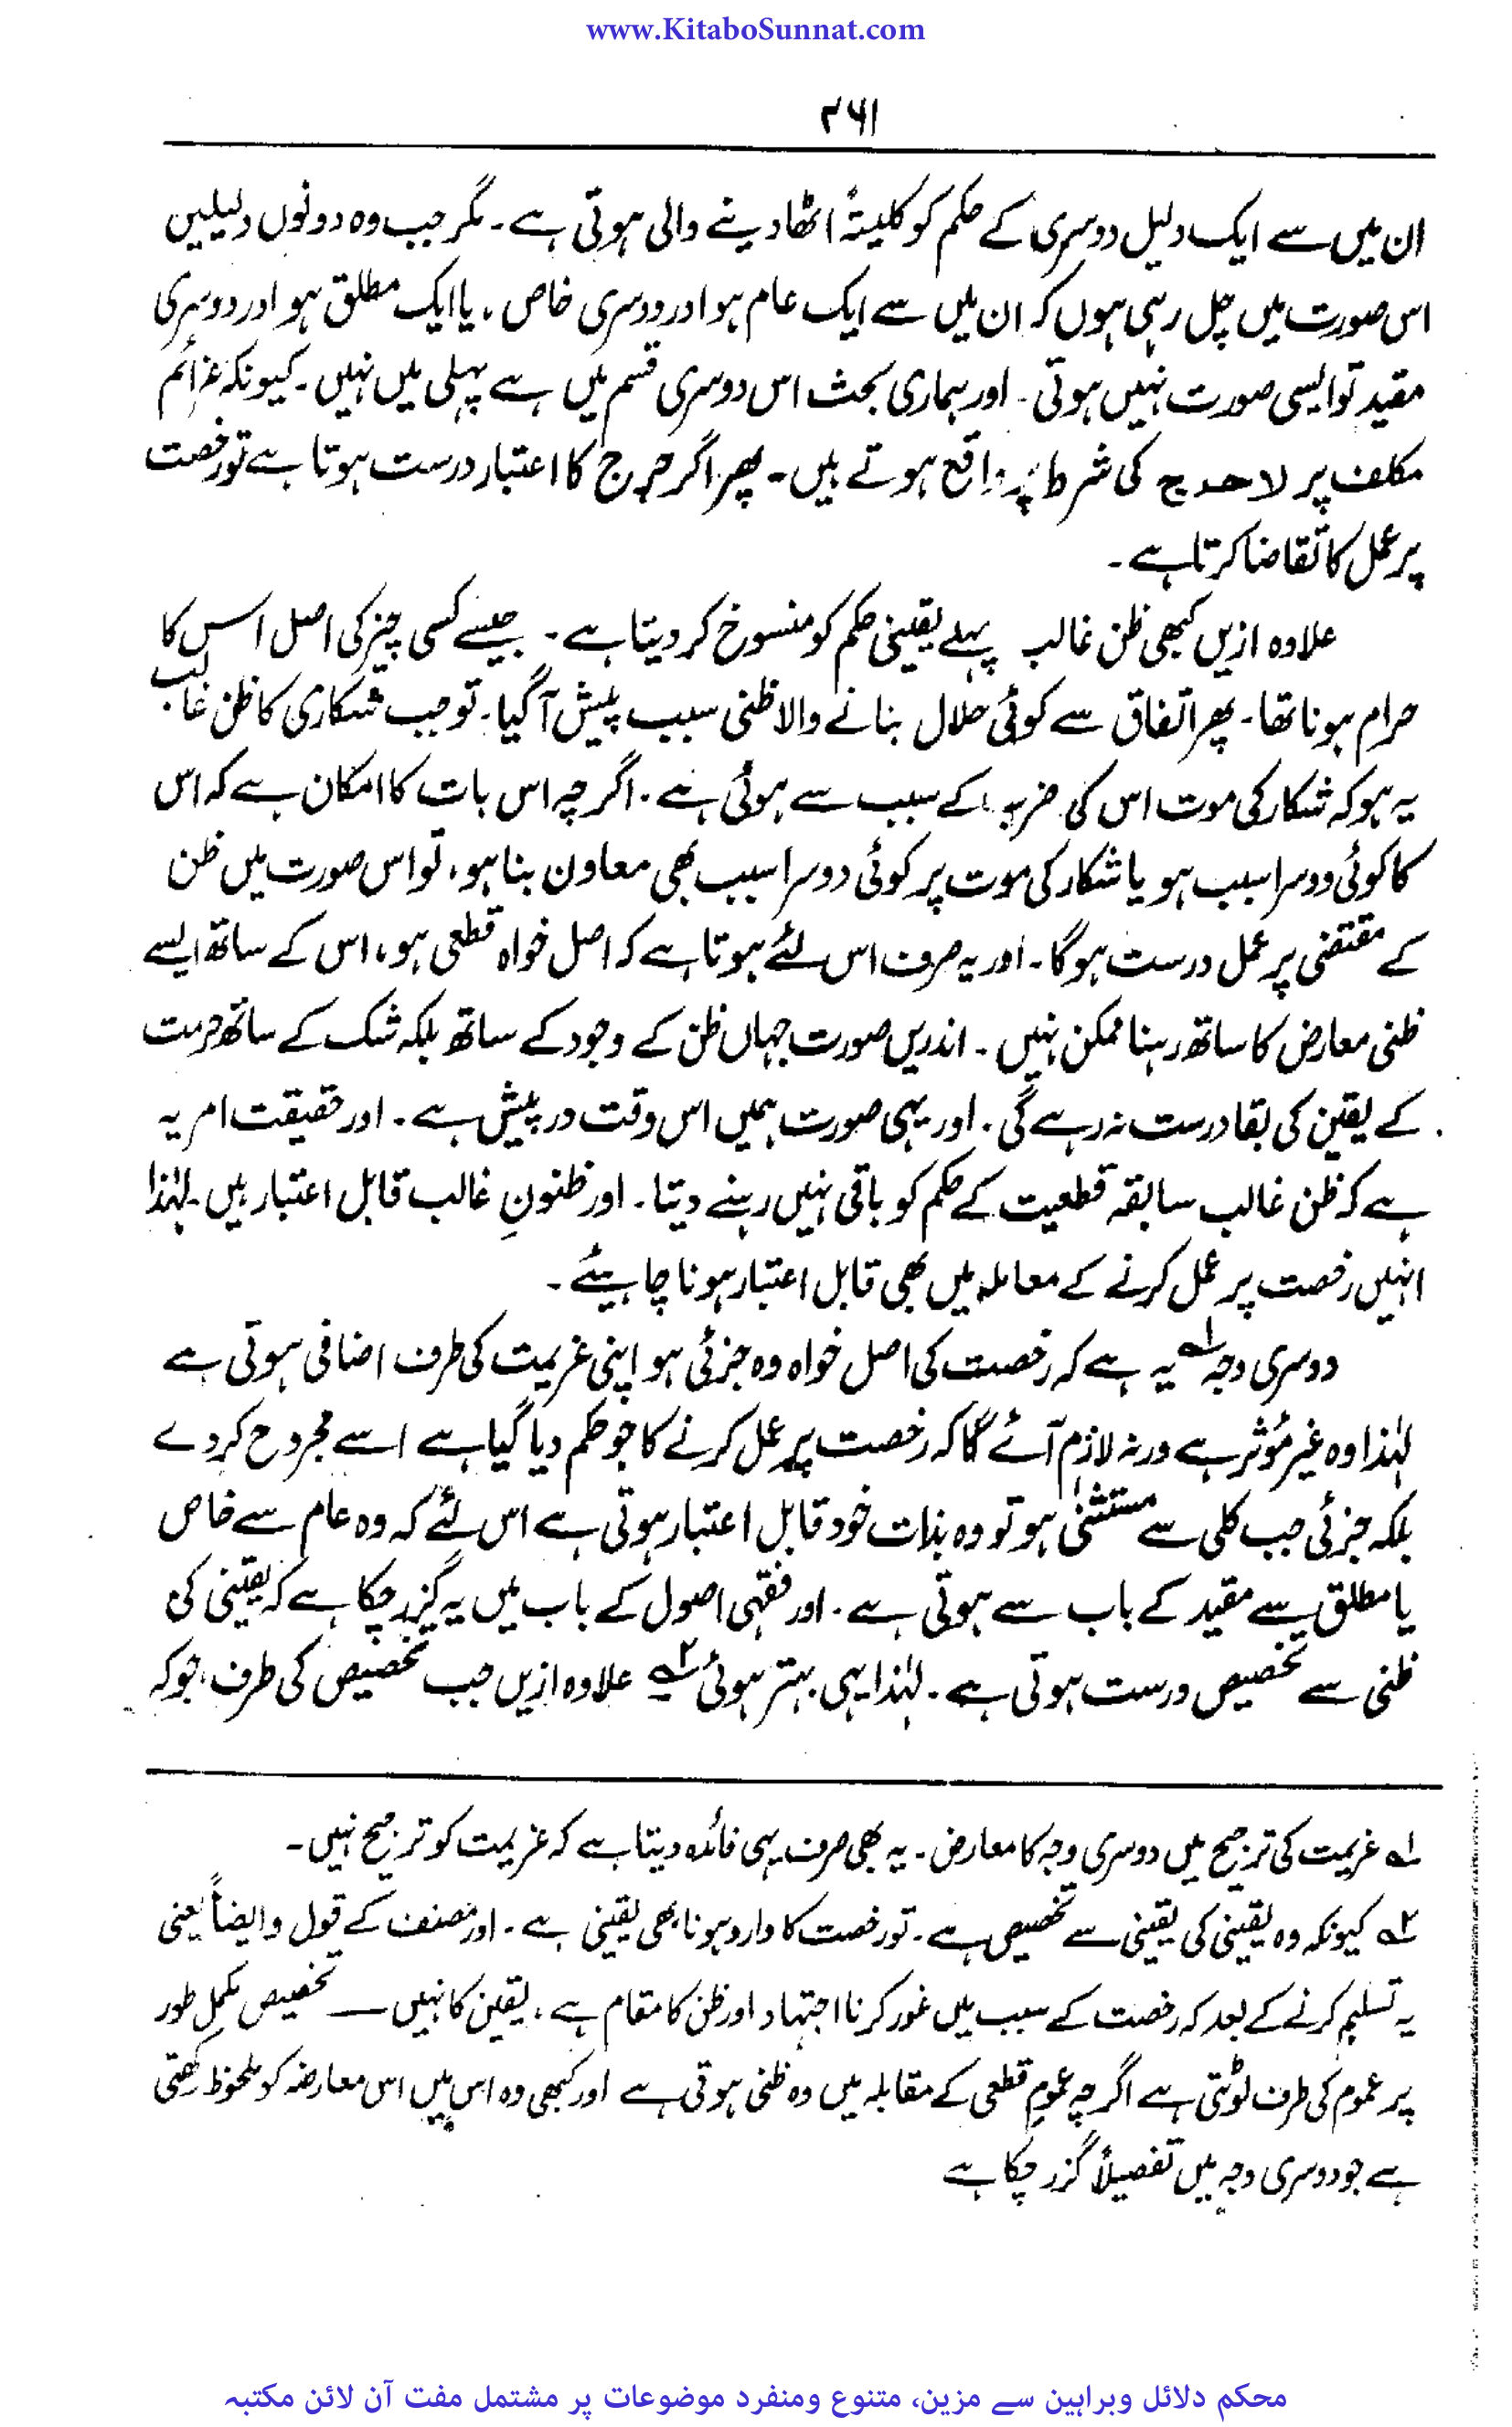 www.KitaboSunnat.com
۲۶۱
ان میں سے ایک دلیل دوسری کے حکم کو کلیتۂ اٹھا دینے والی ہوتی ہے۔ مگر جب وہ دونوں دلیلیں
اس صورت میں چل رہی ہوں کہ ان میں سے ایک عام ہو اور دوسری خاص ، یا ایک مطلق ہو اور دوسری
مقید تو ایسی صورت نہیں ہوتی۔ اور ہماری بحث اس دوسری قسم میں ہے پہلی میں نہیں۔ کیونکہ عزائم
مکلف پر لا حرج کی شرط پر واقع ہوتے ہیں۔ پھر اگر حرج کا اعتبار درست ہوتا ہے تو رخصت
پر عمل کا تقاضا کرتا ہے۔
علاوہ ازیں کبھی ظن غالب پہلے یقینی حکم کو منسوخ کر دیتا ہے۔ جیسے کسی چیز کی اصل اس کا
حرام ہونا تھا۔ پھر اتفاق سے کوئی حلال بنانے والا ظنی سبب پیش آ گیا۔ تو جب شکاری کا ظن غالب
یہ ہو کہ شکار کی موت اس کی ضرب کے سبب سے ہوئی ہے۔ اگرچہ اس بات کا امکان ہے کہ اس
کا کوئی دوسرا سبب ہو یا شکار کی موت پر کوئی دوسرا سبب بھی معاون بنا ہو، تو اس صورت میں ظن
کے مقتضی پر عمل درست ہوگا۔ اور یہ صرف اس لئے ہوتا ہے کہ اصل خواہ قطعی ہو، اس کے ساتھ ایسے
ظنی معارض کا ساتھ رہنا ممکن نہیں۔ اندریں صورت جہاں ظن کے وجود کے ساتھ بلکہ شک کے ساتھ حرمت
کے یقین کی بقا درست نہ رہے گی۔ اور یہی صورت ہمیں اس وقت درپیش ہے۔ اور حقیقت امر یہ
ہے کہ ظن غالب سابقہ قطعیت کے حکم کو باقی نہیں رہنے دیتا۔ اور ظنونِ غالب قابل اعتبار ہیں۔ لہٰذا
انہیں رخصت پر عمل کرنے کے معاملہ میں بھی قابل اعتبار ہونا چاہیئے۔
دوسری وجہ ۱؎ یہ ہے کہ رخصت کی اصل خواہ وہ جزئی ہو اپنی عزیمت کی طرف اضافی ہوتی ہے
لہٰذا وہ غیر مؤثر ہے ورنہ لازم آئے گا کہ رخصت پر عمل کرنے کا جو حکم دیا گیا ہے اسے مجروح کردے
بلکہ جزئی جب کلی سے مستثنیٰ ہو تو وہ بذات خود قابل اعتبار ہوتی ہے اس لئے کہ وہ عام سے خاص
یا مطلق سے مقید کے باب سے ہوتی ہے۔ اور فقہی اصول کے باب میں یہ گزر چکا ہے کہ یقینی کی
ظنی سے تخصیص درست ہوتی ہے۔ لہٰذا یہی بہتر ہوئی ۲؎ علاوہ ازیں جب تخصیص کی طرف ، جو کہ
۱؎ عزیمت کی ترجیح میں دوسری وجہ کا معارض۔ یہ بھی صرف یہی فائدہ دیتا ہے کہ عزیمت کو ترجیح نہیں۔
۲؎ کیونکہ وہ یقینی کی یقینی سے تخصیص ہے۔ تو رخصت کا وارد ہونا بھی یقینی ہے۔ اور مصنف کے قول وایضاً یعنی
یہ تسلیم کرنے کے بعد کہ رخصت کے سبب میں غور کرنا اجتہاد اور ظن کا مقام ہے ، یقین کا نہیں — تخصیص مکمل طور
پر عموم کی طرف لوٹتی ہے اگرچہ عموم قطعی کے مقابلہ میں وہ ظنی ہوتی ہے اور کبھی وہ اس میں اس معارضہ کو ملحوظ رکھتی
ہے جو دوسری وجہ میں تفصیلاً گزر چکا ہے
محکم دلائل وبراہین سے مزین، متنوع ومنفرد موضوعات پر مشتمل مفت آن لائن مکتبہ